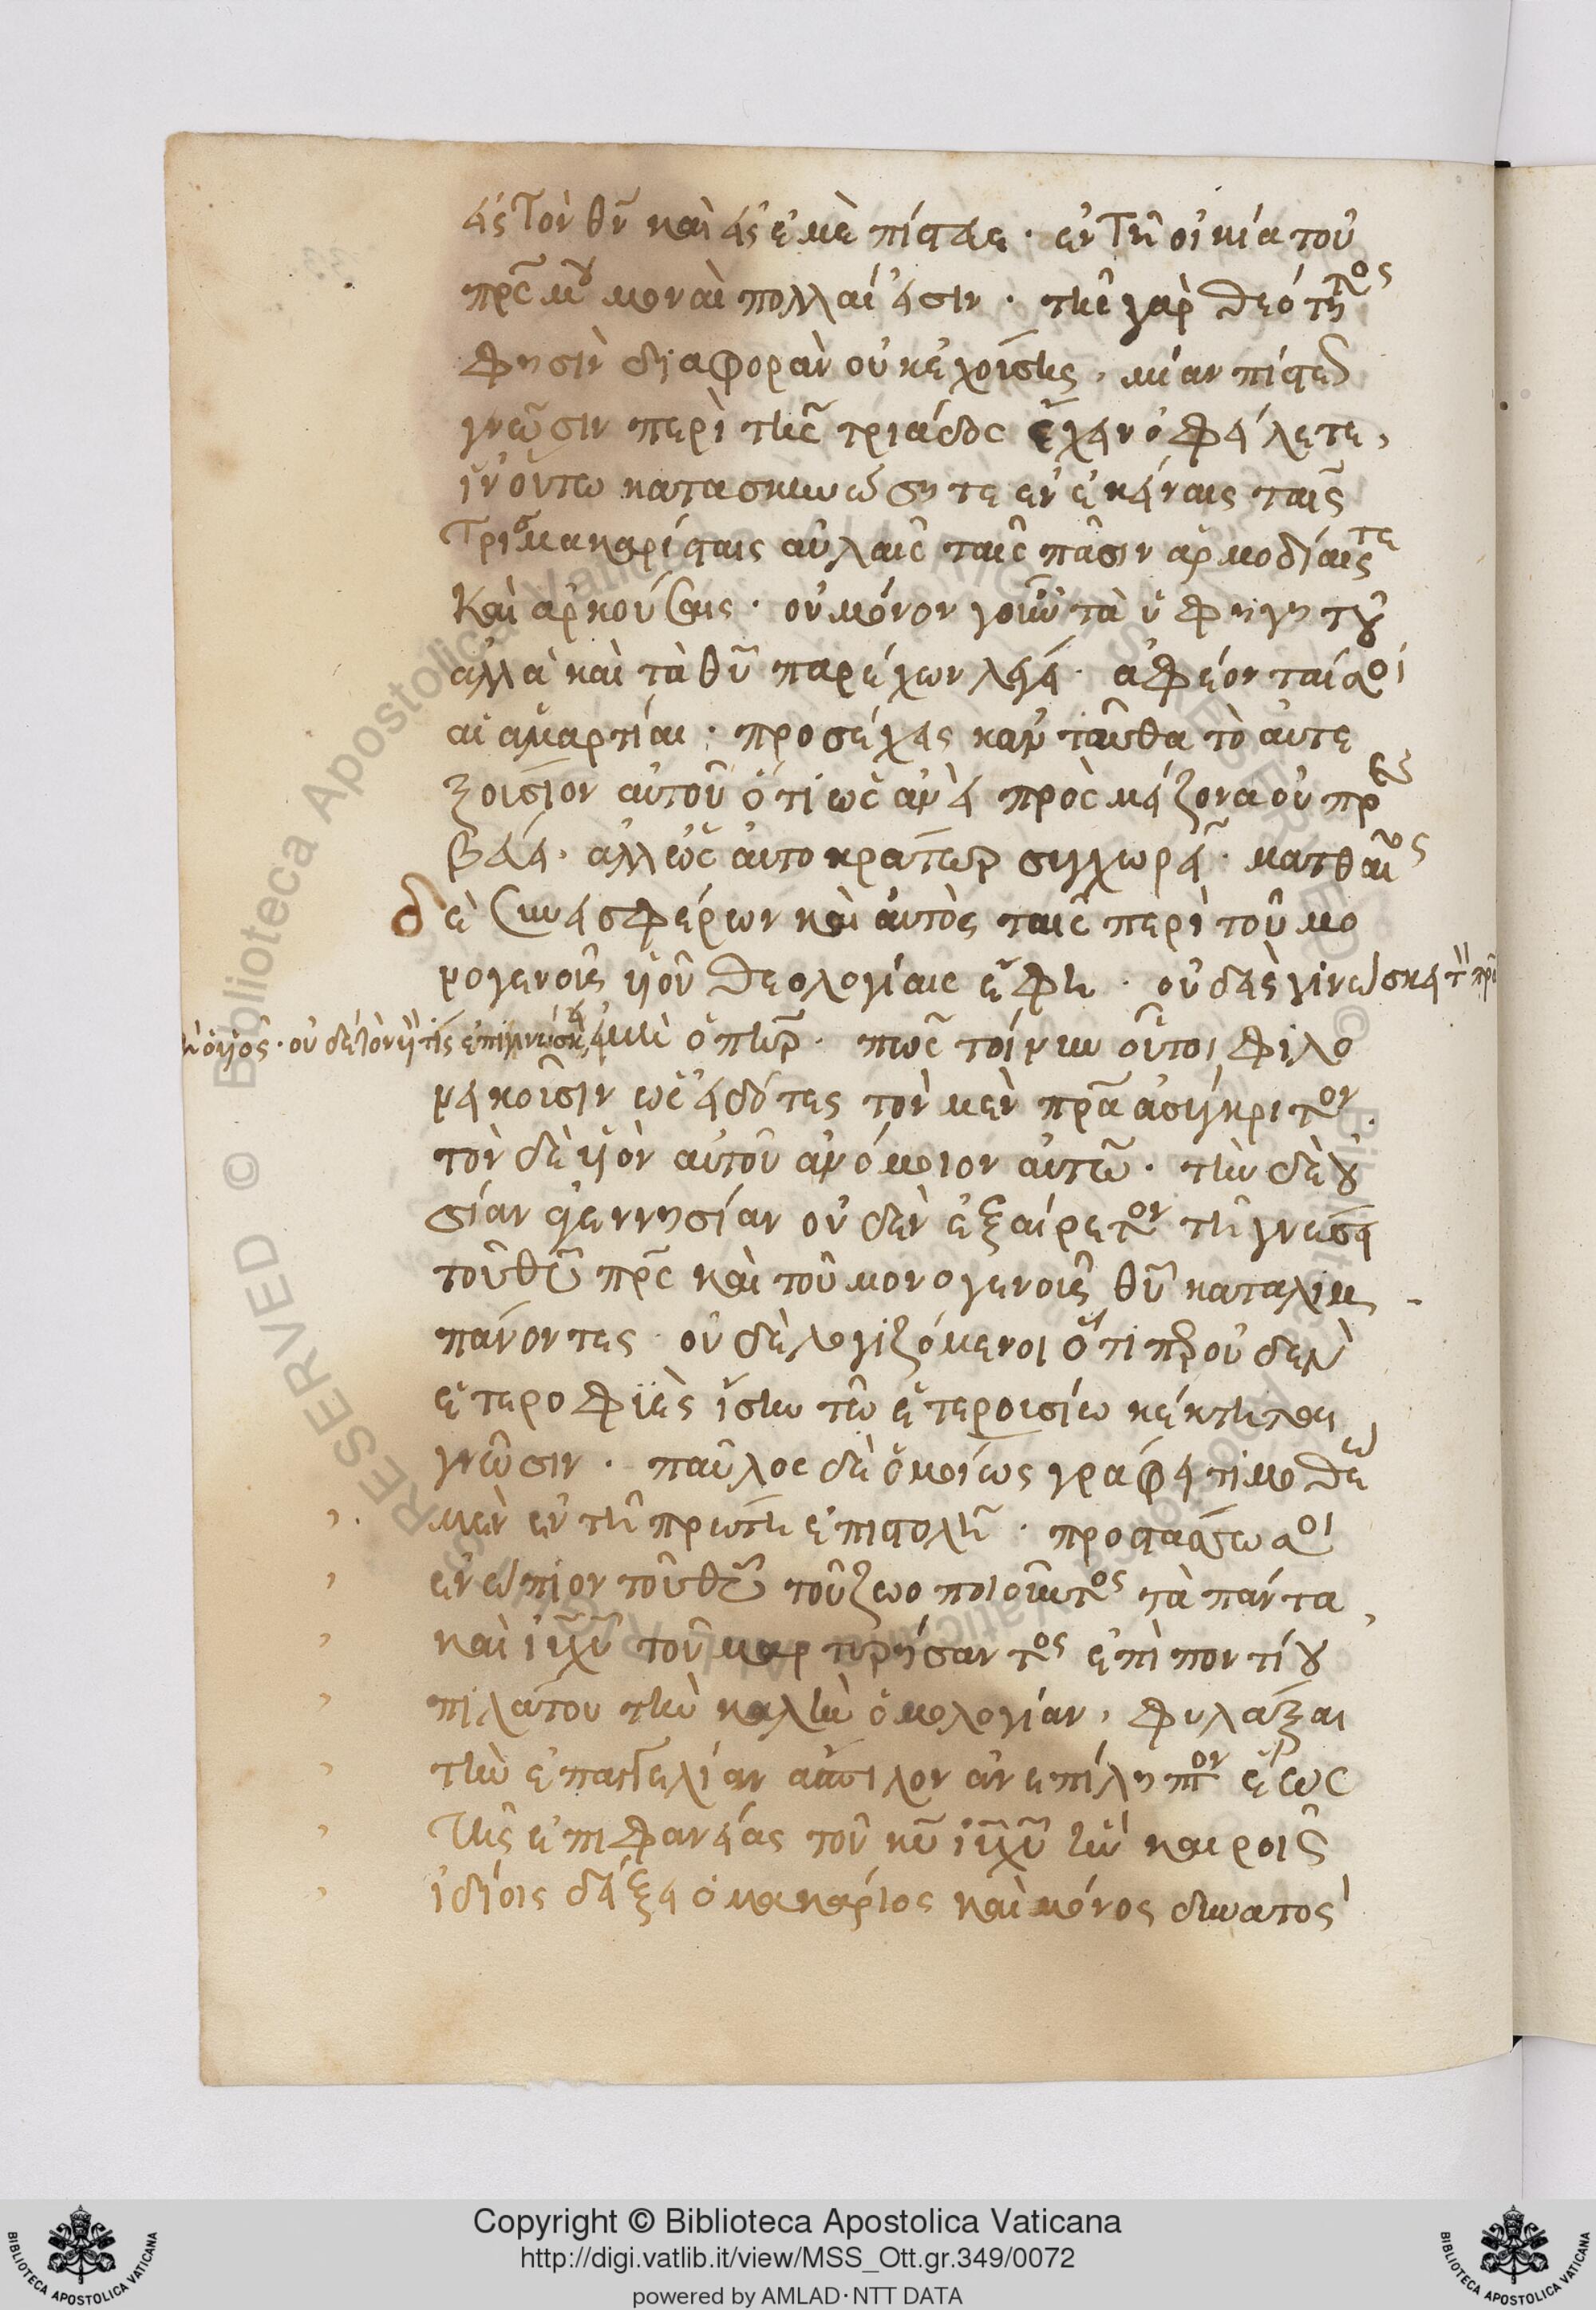 εἰς τὸν θν καὶ εἰς ἐμὲ πιστεύετε· ἐν τῆ οἰκία τοῦ
πρς μου μοναὶ πολλαί εἰσιν· τῆς γὰρ θεότητος
φησὶν διαφορὰν οὐκ ἐχούσης, μίαν πίστεως
γνῶσιν περὶ τῆς τριάδος ἔχειν ὀφείλετε,
ἵν' οὕτω κατασκηνώσητε ἐν ἐκείναις ταῖς
τρισμακαρίσταις αὐλαῖς ταῖς πᾶσιν ἁρμοδίαις τε
καὶ ἀρκούσαις· οὐ μόνον γοῦν τὰ ὑφηγητοῦ
ἀλλὰ καὶ τὰ θυ παρέχων λέγει· ἀφέονταί σοι
αἱ ἁμαρτίαι· προσέχεις κἀνταῦθα τὸ αὐτε
ξούσιον αὐτοῦ ὅτι ὡς ἀνεὶ πρὸς μείζονα οὐ πρεσ
βεύει· ἀλλ' ὡς αὐτοκράτωρ συγχωρεῖ· ματθαῖος
δὲ συνεισφέρων καὶ αὐτὸς ταῖς περὶ τοῦ μο
νογενοῦς υἱοῦ θεολογίαις ἔφη· οὐδεὶς γινώσκει τὸν πρα
εἰ μὴ ὁ υἱός· οὐδὲ τὸν υἱόν τις ἐπιγινώσκει εἰ μὴ ὁ πηρ· πῶς τοίνυν οὗτοι φιλο
νεικοῦσιν ὡς εἰδότες τὸν μὲν πρα ἀσύγκριτον.
τὸν δὲ υἱὸν αὐτοῦ ἀνόμοιον αὐτῶ· τὴν δὲ οὐ
σίαν ἀγεννησίαν οὐδὲν ἐξαίρετον τῆ γνώσει
τοῦ θυ πρς καὶ τοῦ μονογενοῦς θυ καταλιμ
πάνοντες· οὐδὲ λογιζόμενοι ὅτιπερ οὐδὲν
ἑτεροφυὲς ἴσην τῶ ἑτερουσίω κέκτηται
γνῶσιν· παῦλος δὲ ὁμοίως γράφει τιμοθέω
μὲν ἐν τῆ πρώτη ἐπιστολῆ· προστάσσω σοι
ἐνώπιον τοῦ θυ τοῦ ζωοποιοῦντος τὰ πάντα,
καὶ ιυ χυ τοῦ μαρτυρήσαντος ἐπὶ ποντίου
πιλάτου τὴν καλὴν ὁμολογίαν, φυλάξαι
τὴν ἐπαγγελίαν ἄσπιλον ἀνεπίληπτον ἕως
τῆς ἐπιφανείας τοῦ κυ ιυ χυ ἣν καιροῖς
ἰδίοις δείξει ὁ μακάριος καὶ μόνος δυνατος
Copyright © Biblioteca Apostolica Vaticana
http://digi.vatlib.it/view/MSS_Ott.gr.349/0072
powered by AMLAD·NTT DATA